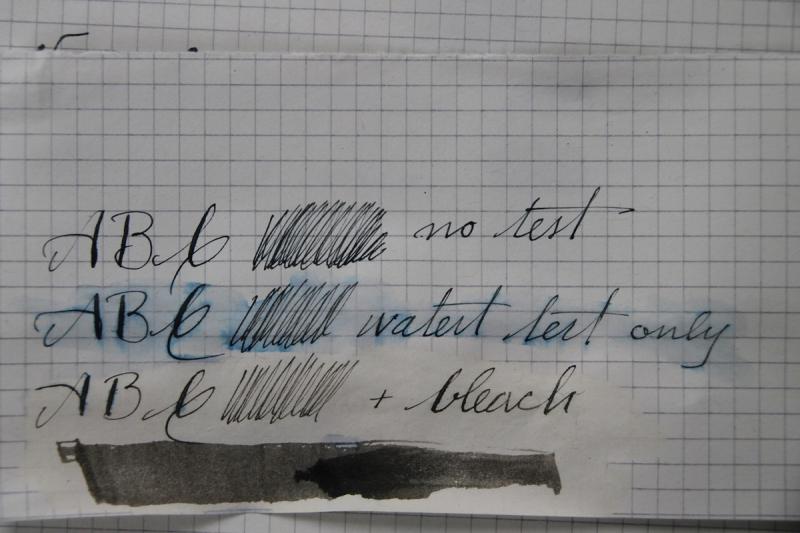 ABC no test
ABC watert test only
ABC + bleach